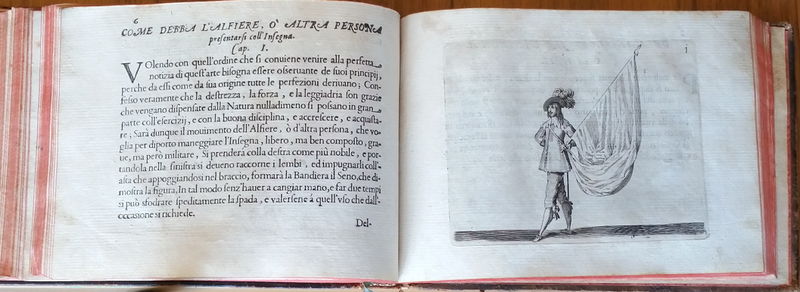 6
COME DEBBA L'ALFIERE, Ò ALTRA PERSONA
presentarsi coll'Insegna.
Cap. I.
VOlendo con quell'ordine che si conuiene venire alla perfetta
notizia di quest'arte bisogna essere osseruante de suoi principij,
perche da essi come da sua origine tutte le perfezioni deriuano; Con-
fesso veramente che la destrezza, la forza, e la leggiadria son grazie
che vengano dispensate dalla Natura nulladimeno si possano in gran
parte coll'esercizij, e con la buona disciplina, e accrescere, e acquista-
re; Sarà dunque il mouimento dell'Alfiere, ò d'altra persona, che vo-
glia per diporto maneggiare l'Insegna, libero, ma ben composto, gra-
ue, ma però militare, Si prenderà colla destra come più nobile, e por-
tandola nella sinistra si deueno raccorne i lembi, ed impugnarli coll'-
asta che appoggiandosi nel braccio, formarà la Bandiera il Seno, che di-
mostra la figura, In tal modo senz'hauer a cangiar mano, e far due tempi
si può sfodrare speditamente la spada, e valersene á quell'vso che dall'-
occasione si richiede.
Del-
1